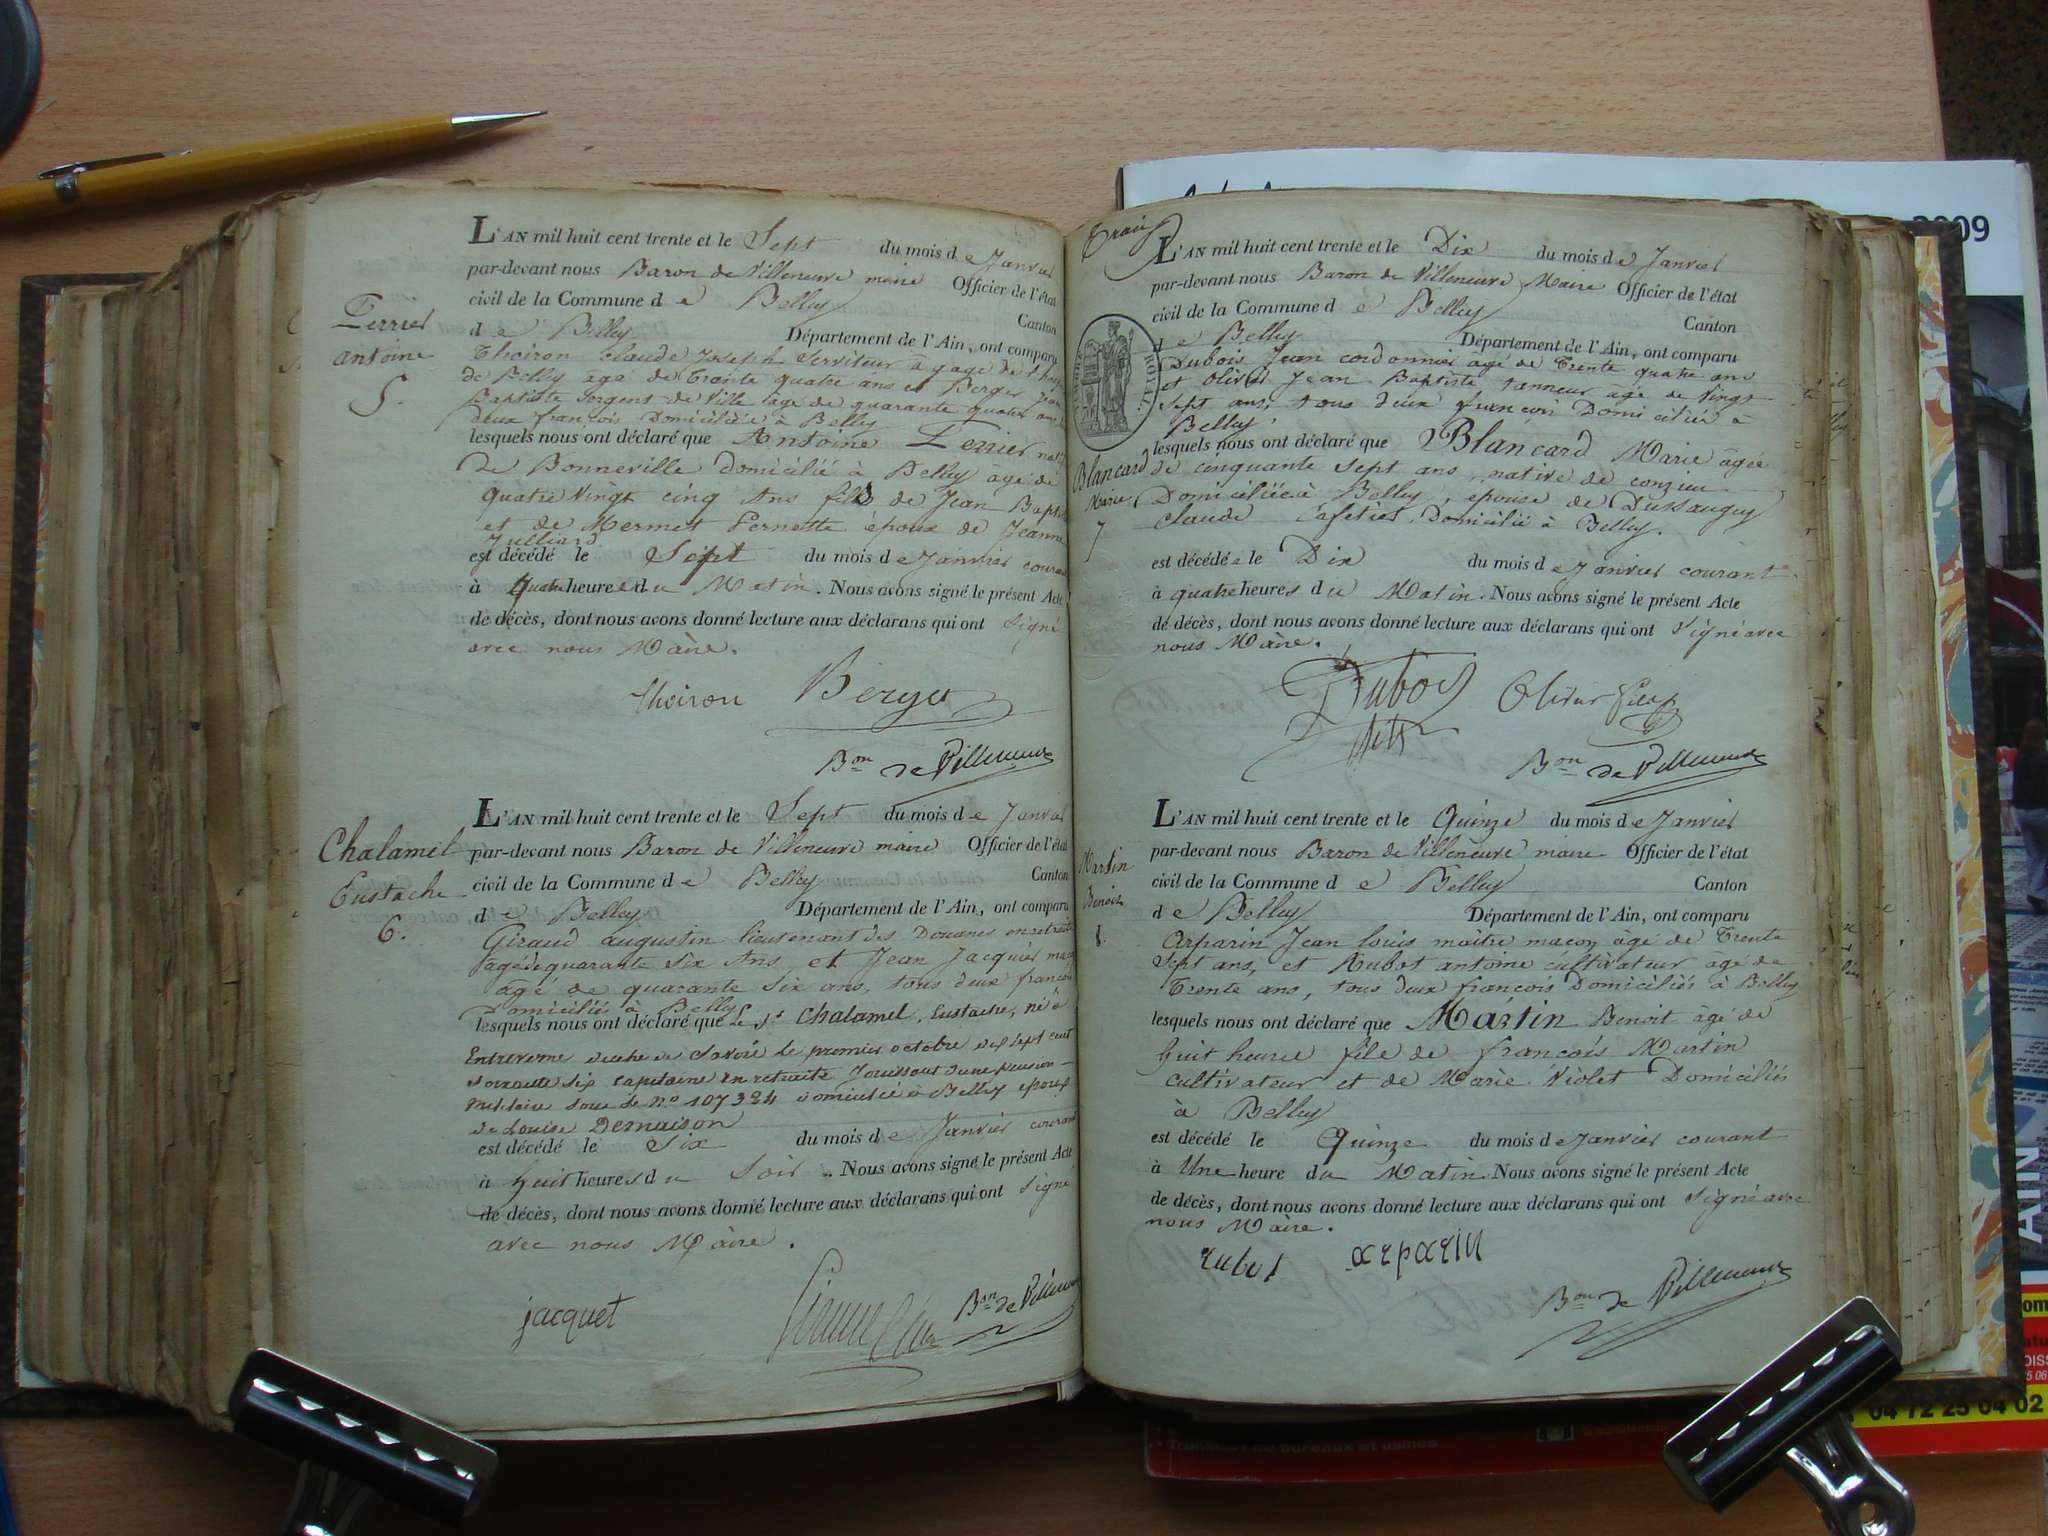 L'AN mil huit cent trente et le Sept du mois de Janvier
par-devant nous Baron de Villeneuve maire Officier de l'état
civil de la Commune de Belley Canton
de Belley Département de l'Ain, ont comparu
Perrier
antoine
5.
Thoiron Claude Joseph Serviteur à gage de
de Belley âgé de Trente quatre ans et Berger Jean
Baptiste Sergent de Ville âgé de quarante quatre ans
deux françois Domiciliés à Belley
lesquels nous ont déclaré que Antoine Perrier natif
de Bonneville domicilié à Belley âgé de
quatre Vingt cinq Ans fils de Jean Baptiste
et de Mermet Pernette époux de Jeanne
Julliard
est décédé le Sept du mois de Janvier courant
à quatre heures du Matin. Nous avons signé le présent Acte
de décès, dont nous avons donné lecture aux déclarans qui ont signé
avec nous Maire.
Thoiron Berger
Bon de Villeneuve
L'AN mil huit cent trente et le Sept du mois de Janvier
Chalamel
Eustache
6.
par-devant nous Baron de Villeneuve maire Officier de l'état
civil de la Commune de Belley Canton
de Belley Département de l'Ain, ont comparu
Giraud augustin lieutenant des Douanes en retraite
âgé de quarante Six Ans, et Jean Jacquier maçon
âgé de quarante Six ans, tous deux françois
Domiciliés à Belley
lesquels nous ont déclaré que le Sr Chalamel, Eustache, né à
Entreverne duché de Savoie le premier octobre dix sept cent
soixante six capitaine en retraite Jouissant d'une pension
militaire sous le No 107324 domicilié à Belley époux
de Louise Demaison
est décédé le Six du mois de Janvier courant
à huit heures du Soir. Nous avons signé le présent Acte
de décès, dont nous avons donné lecture aux déclarans qui ont signé
avec nous Maire.
jacquet
Bon de Villeneuve
Trois
L'AN mil huit cent trente et le Dix du mois de Janvier
par-devant nous Baron de Villeneuve Maire Officier de l'état
civil de la Commune de Belley Canton
de Belley Département de l'Ain, ont comparu
ROYAL
Dubois Jean cordonnier âgé de Trente quatre ans
et Olivier Jean Baptiste tanneur âgé de Vingt
Sept ans, tous deux françois Domiciliés à
Belley
Blancard
Marie
7
lesquels nous ont déclaré que Blancard Marie âgée
de cinquante Sept ans, native de conzieu
Domiciliée à Belley, épouse de Dussauguy
claude Cafetier, Domicilié à Belley.
est décédée le Dix du mois de Janvier courant
à quatre heures du Matin. Nous avons signé le présent Acte
de décès, dont nous avons donné lecture aux déclarans qui ont signé avec
nous Maire.
Dubois Olivier
Bon de Villeneuve
L'AN mil huit cent trente et le Quinze du mois de Janvier
Martin
Benoit
8.
par-devant nous Baron de Villeneuve maire Officier de l'état
civil de la Commune de Belley Canton
de Belley Département de l'Ain, ont comparu
Arparin Jean louis maître maçon âgé de Trente
Sept ans, et Rubot antoine cultivateur âgé de
Trente ans, tous deux françois Domiciliés à Belley
lesquels nous ont déclaré que Martin Benoit âgé de
huit heures fils de françois Martin
cultivateur et de Marie Violet Domiciliés
à Belley
est décédé le Quinze du mois de Janvier courant
à Une heure du Matin. Nous avons signé le présent Acte
de décès, dont nous avons donné lecture aux déclarans qui ont signé avec
nous Maire.
rubot arparin
Bon de Villeneuve
2009
AIN
04 72 25 04 02
Transfert de bureaux et usines